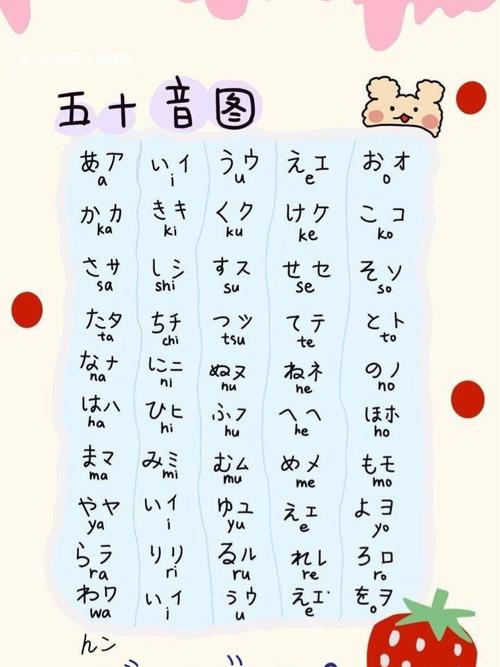 五十音图
あア いイ うウ えエ おオ
a i u e o
かカ きキ くク けケ こコ
ka ki ku ke ko
さサ しシ すス せセ そソ
sa shi su se so
たタ ちチ つツ てテ とト
ta chi tsu te to
なナ にニ ぬヌ ねネ のノ
na ni nu ne no
はハ ひヒ ふフ へヘ ほホ
ha hi hu he ho
まマ みミ むム めメ もモ
ma mi mu me mo
やヤ いイ ゆユ えエ よヨ
ya i yu e yo
らラ りリ るル れレ ろロ
ra ri ru re ro
わワ いイ うウ えエ をヲ
wa i u e o
んン